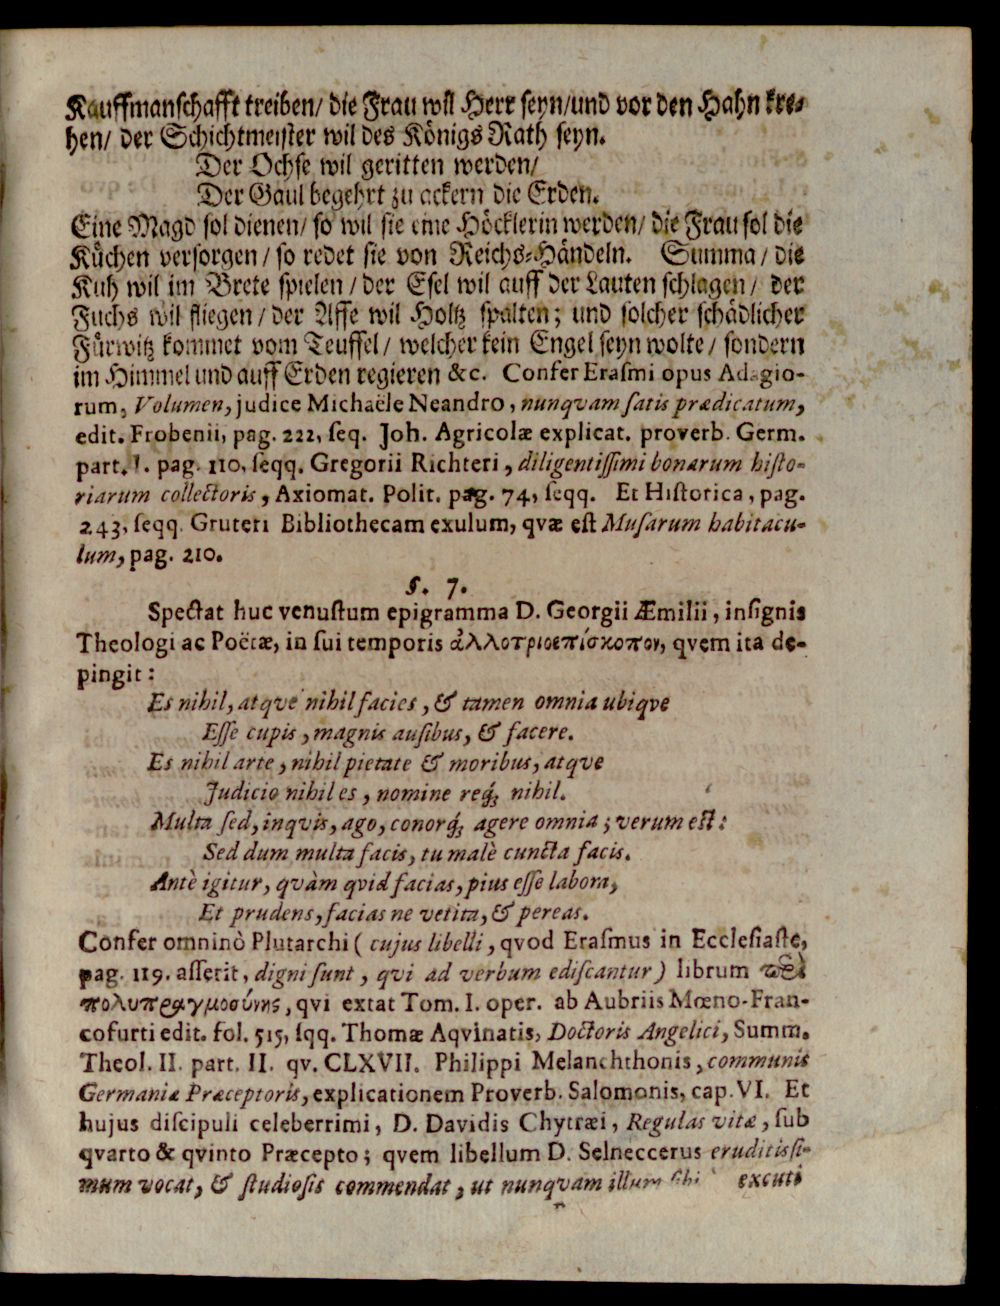 Kauffmanschafft treiben/ die Frau wil Herr seyn/und vor den Hahn kre⸗
hen/ der Schichtmeister wil des Königs Rath seyn.
Der Ochse wil geritten werden/
Der Gaul begehrt zu ackern die Erden.
Eine Magd sol dienen/ so wil sie eine Höcklerin werden/ die Frau sol die
Küchen versorgen/ so redet sie von Reichs⸗Händeln. Summa/ die
Kuh wil im Brete spielen/ der Esel wil auff der Lauten schlagen/ der
Fuchs wil fliegen/ der Affe wil Holtz spalten; und solcher schädlicher
Fürwitz kommet vom Teuffel/ welcher kein Engel seyn wolte/ sondern
im Himmel und auff Erden regieren &c. Confer Eraſmi opus Adagio-
rum, Volumen, judice Michaële Neandro, nunqvam ſatis prædicatum,
edit. Frobenii, pag. 222, ſeq. Joh. Agricolæ explicat. proverb. Germ.
part. I. pag. 110, ſeqq. Gregorii Richteri, diligentiſſimi bonarum hiſto-
riarum collectoris, Axiomat. Polit. pag. 74, ſeqq. Et Hiſtorica, pag.
243, ſeqq. Gruteri Bibliothecam exulum, qvæ eſt Muſarum habitacu-
lum, pag. 210.
§. 7.
Spectat huc venuſtum epigramma D. Georgii Æmilii, inſignis
Theologi ac Poëtæ, in ſui temporis ἀλλοτριοεπίσκοπον, qvem ita de-
pingit:
Es nihil, atqve nihil facies, & tamen omnia ubiqve
Eſſe cupis, magnis auſibus, & facere.
Es nihil arte, nihil pietate & moribus, atqve
Judicio nihil es, nomine req́; nihil.
Multa ſed, inqvis, ago, conorq́; agere omnia; verum eſt:
Sed dum multa facis, tu malè cuncta facis.
Antè igitur, qvàm qvid facias, pius eſſe labora,
Et prudens, facias ne vetita, & pereas.
Confer omninò Plutarchi (cujus libelli, qvod Eraſmus in Eccleſiaſte,
pag. 119. aſſerit, digni ſunt, qvi ad verbum ediſcantur) librum περὶ
πολυπραγμοσύνης, qvi extat Tom. I. oper. ab Aubriis Mœno-Fran-
cofurti edit. fol. 515, ſqq. Thomæ Aqvinatis, Doctoris Angelici, Summ.
Theol. II. part. II. qv. CLXVII. Philippi Melanchthonis, communis
Germaniæ Præceptoris, explicationem Proverb. Salomonis, cap. VI. Et
hujus diſcipuli celeberrimi, D. Davidis Chytræi, Regulas vitæ, ſub
qvarto & qvinto Præcepto; qvem libellum D. Selneccerus eruditisſi-
mum vocat, & ſtudioſis commendat, ut nunqvam illum ſibi excuti